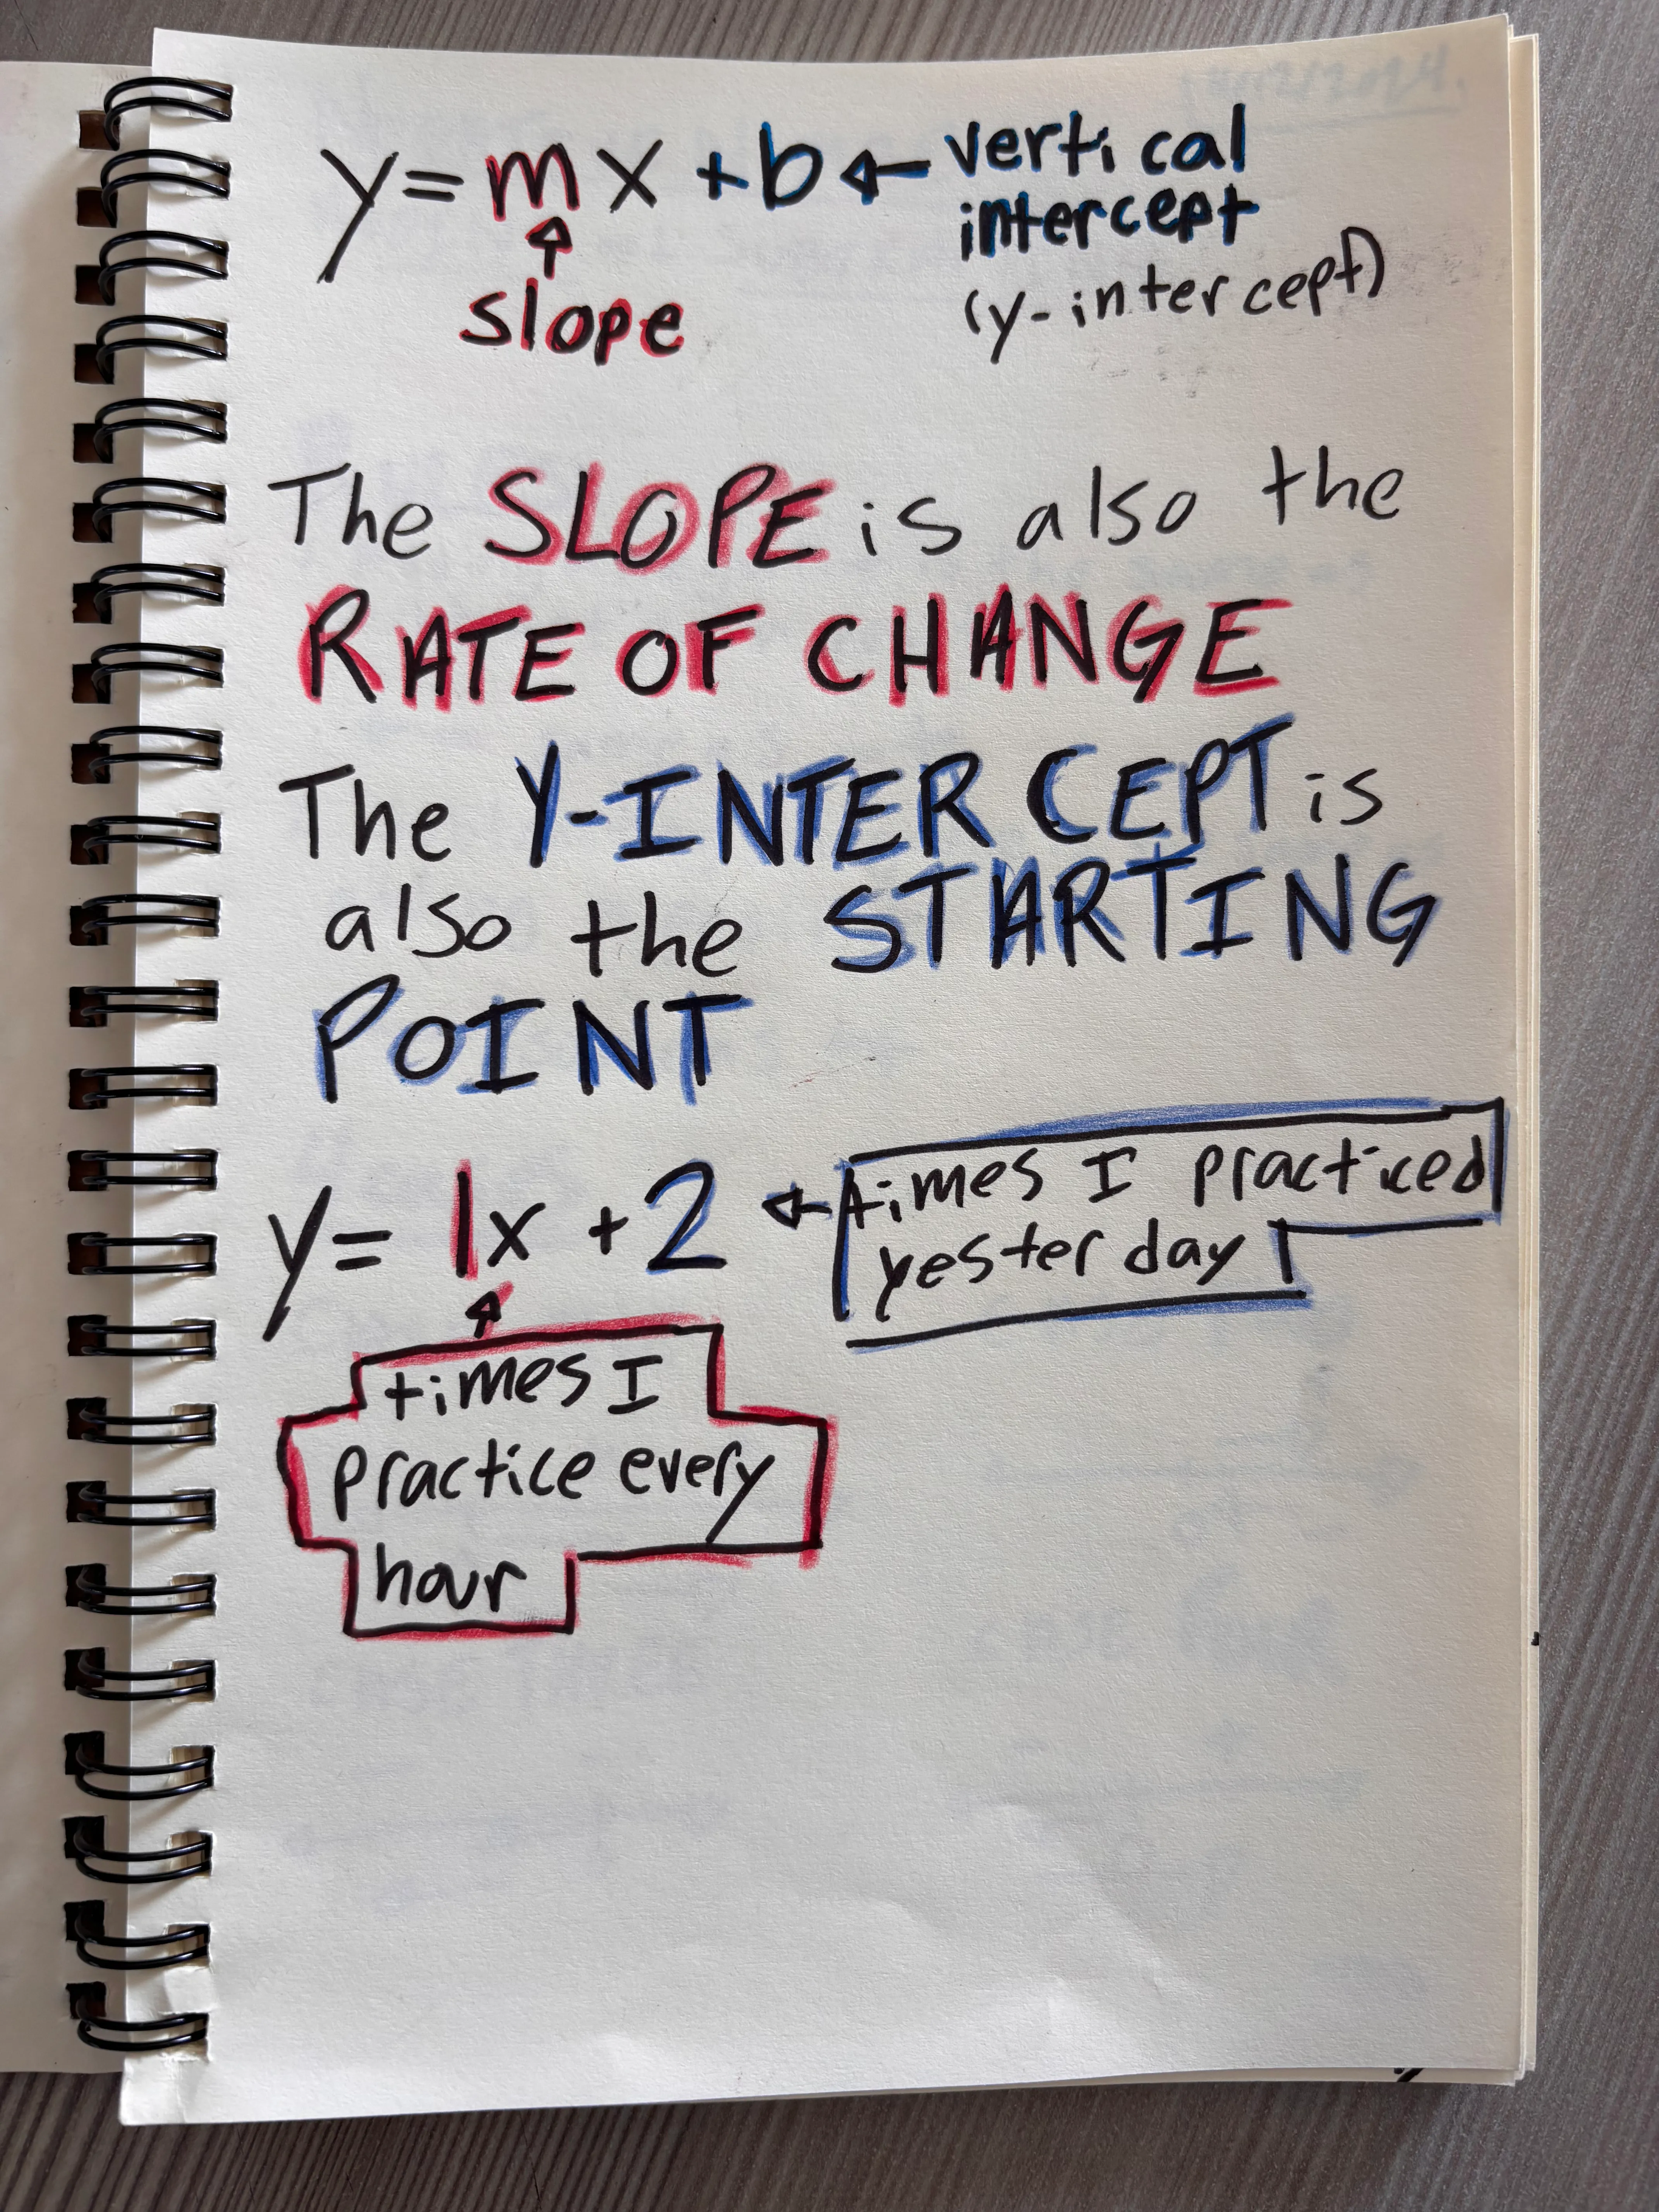 y = mx + b ← vertical
intercept
(y-intercept)
↑
slope
The SLOPE is also the
RATE OF CHANGE
The Y-INTERCEPT is
also the STARTING
POINT
y = 1x + 2 ← times I practiced
yesterday
↑
times I
practice every
hour